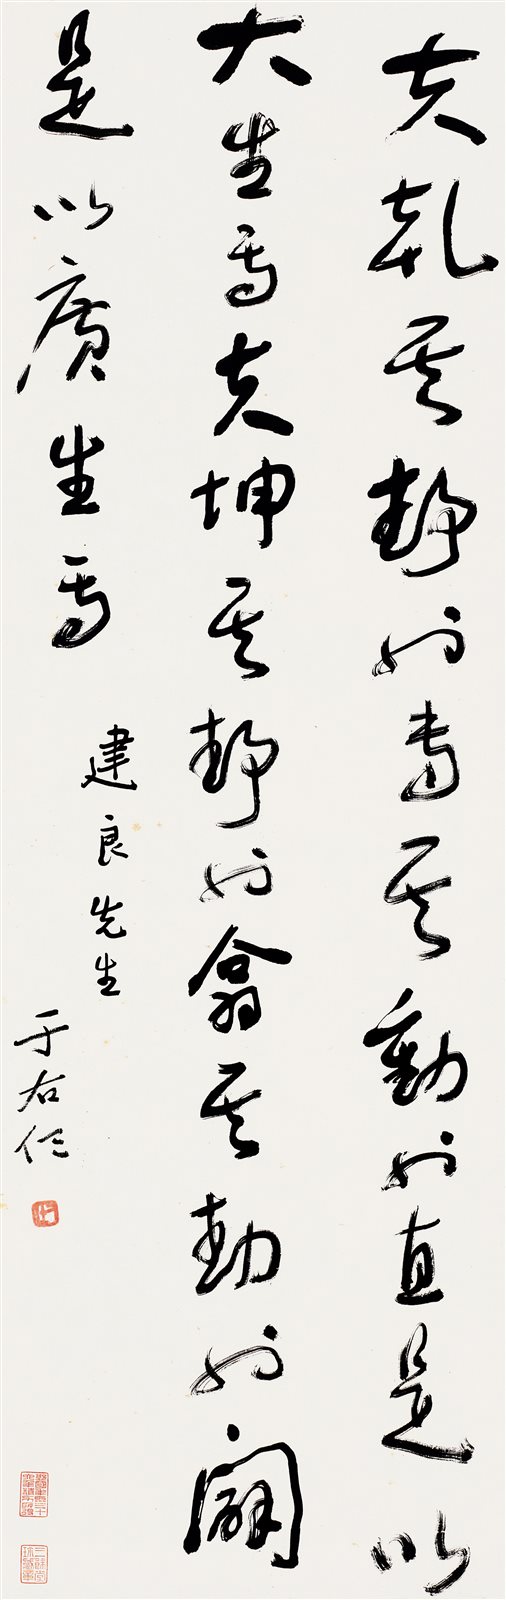 夫乾其靜也專其動也直是以
大生焉夫坤其靜也翕其動也闢
是以廣生焉
建良先生
于右任